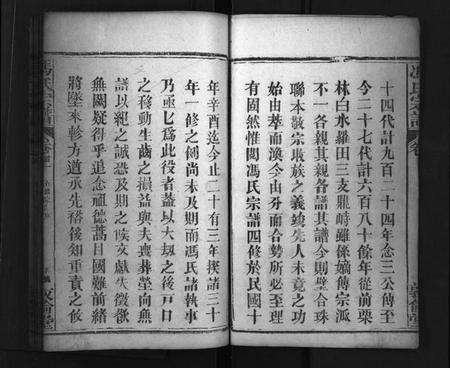 馮氏宗譜
十四代計九百二十四年念三公傳至
今二十七代計六百八十餘年從前栗
林白水羅田三支鼎峙雖係嫡傳宗派
不一各親其親各譜其譜今則璧合珠
聯本敬宗收族之義竟先人未竟之功
始由萃而渙今由分而合勢所必至理
有固然惟閱馮氏宗譜四修於民國十
年辛酉迄今止二十有三年揆諸三十
年一修之例尚未及期而馮氏諸執事
乃亟亟爲此役者蓋以大劫之後戸口
之移動生齒之損益與夫喪葬塋向無
譜以紀之誠恐及期之候文獻失徵欲
無闕疑得乎追念祖德蒿目國難前緒
將墜來軫方遒承先裕後知重責之攸
馮氏宗譜